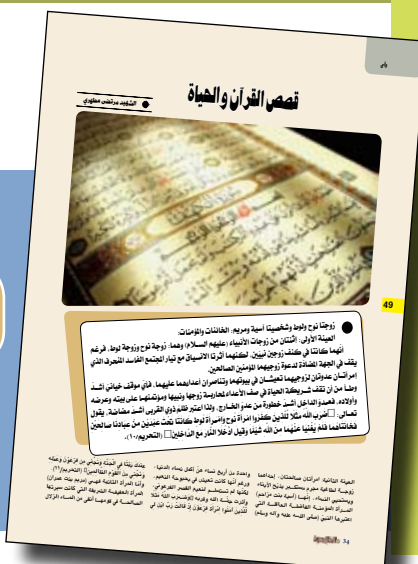 قصص القرآن والحياة
الشهيد مرتضى مطهري
49
زوجتا نوح ولوط وشخصيتا آسية ومريم: الخائنات والمؤمنات:
العينة الأولى: اثنتان من زوجات الأنبياء (عليهم السلام) وهما: زوجة نوح وزوجة لوط. فرغم
أنهما كانتا في كنف زوجين نبيين. لكنهما آثرتا الانسياق مع تيار المجتمع الفاسد المنحرف الذي
يقف في الجهة المضادة لدعوة زوجيهما المؤمنين الصالحين.
امرأتان عدوتان لزوجيهما تعيشان في بيوتهما وتناصران أعداءهما عليهما. فأي موقف خياني أشدّ
وطأ من أن تقف شريكة الحياة في صف الأعداء لمحاربة زوجها ونبيها ومؤتمنها على بيته وعرضه
وأولاده. فعدو الداخل أشدّ خطورة من عدو الخارج. ولذا اعتبر ظلم ذوي القربى أشدّ مضاضة. يقول
تعالى: ضرب الله مثلًا للذين كفروا امرأة نوح وامرأة لوط كانتا تحت عبدين من عبادنا صالحين
فخانتاهما فلم يغنيا عنهما من الله شيئا وقيل ادخلا النار مع الداخلين (التحريم/١٠).
العينة الثانية: امرأتان صالحتان: إحداهما
زوجة لطاغية مجرم يستكبر يذبح الأبناء
ويستحيي النساء. إنها (آسية بنت مزاحم)
المرأة المؤمنة الفاضلة العاقلة التي
اعتبرها النبي (صلى الله عليه وآله وسلم)
واحدة من أربع نساء هنّ أكمل نساء الدنيا،
ورغم أنها كانت تعيش في بحبوحة النعيم،
لكنها لم تستسلم لنعيم القصر الفرعوني.
وآثرت جنّة الله وقربه وضرب الله مثلا
للذين آمنوا امرأة فرعون إذ قالت رب ابن لي
عندك بيتًا في الجنة ونجني من فرعون وعمله
ونجني من القوم الظالمين (التحريم/١١).
وأما المرأة الثانية فهي (مريم بنت عمران)
المرأة العفيفة الشريفة التي كانت سيرتها
الصالحة في قومها أنقى من الماء الزلال
34